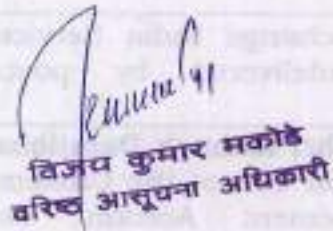 विजय कुमार मकोडे
वरिष्ठ आसूचना अधिकारी